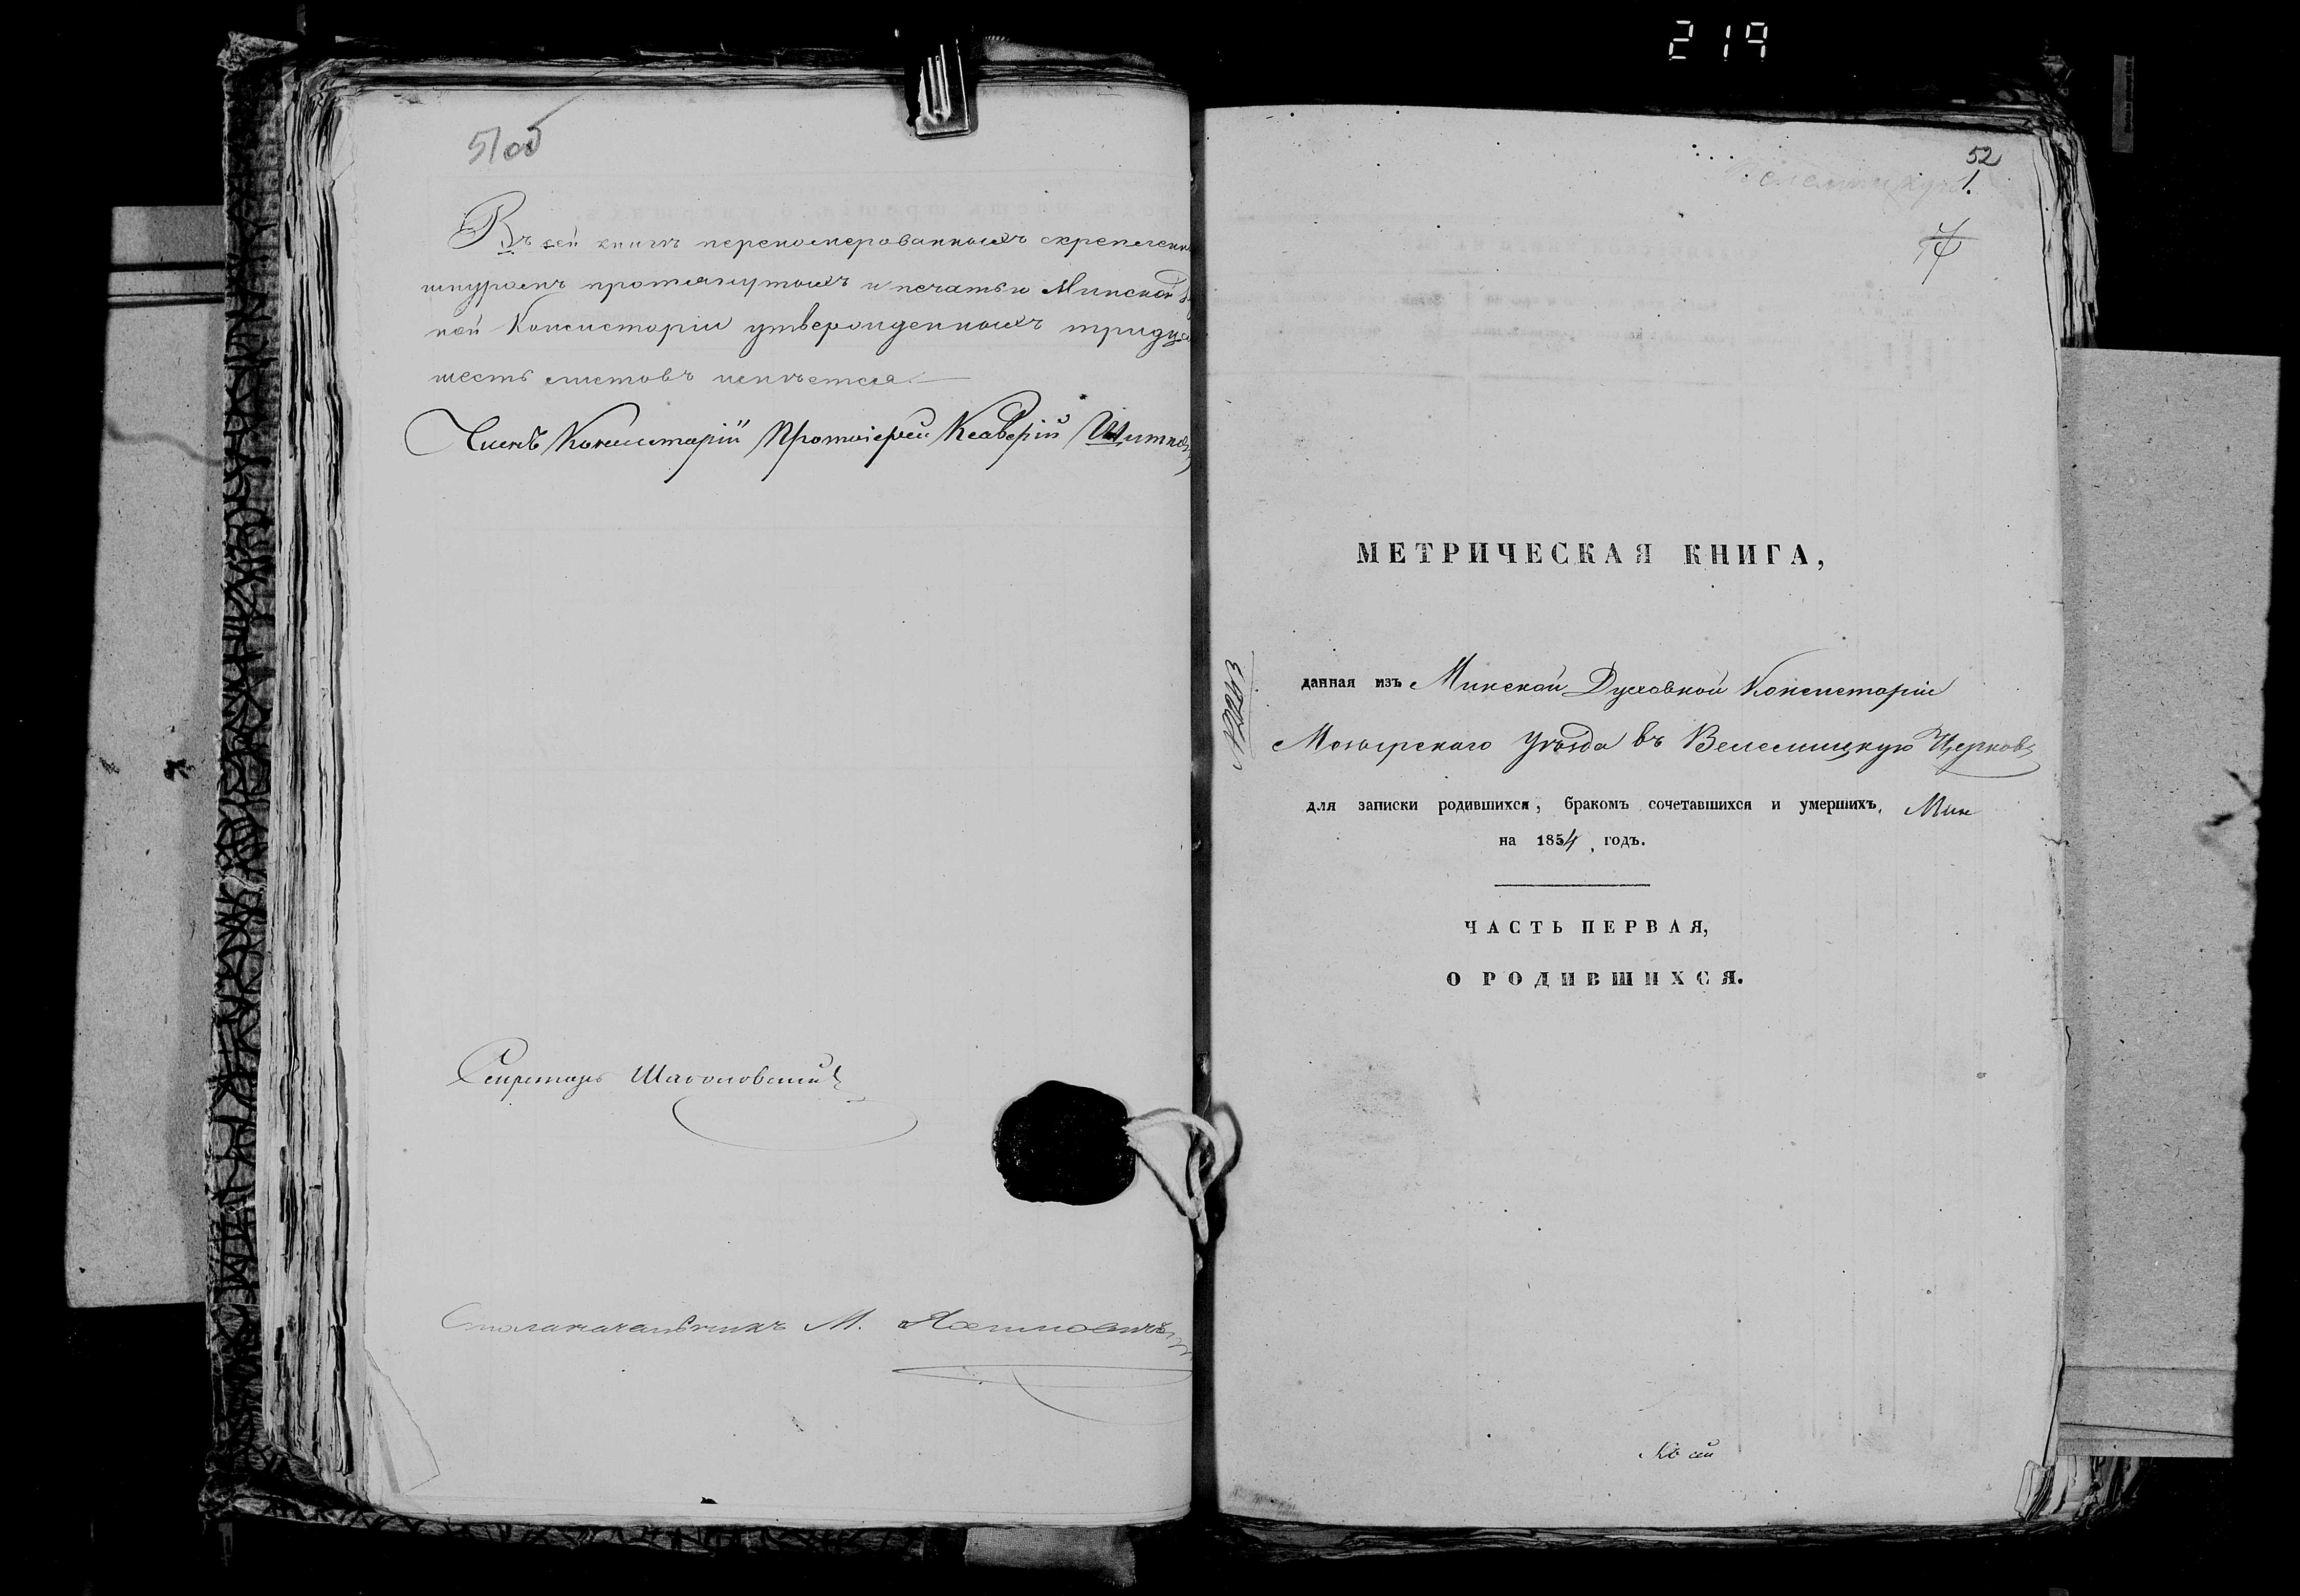 219
51 об
Въ сей книгѣ перепомерованныхъ скрепленн
шнуромъ протянутыхъ и печатью Минской
ной Консисторіи утвержденныхъ тридца
шесть листовъ имѣется.
Членъ Консисторіи Протоіерей Ксаверій
Секретарь
Столоначальникъ М.
52
1.
МЕТРИЧЕСКАЯ КНИГА,
данная изъ Минской Духовной Консисторіи
Мозырскаго уѣзда въ Велемицкую Церковь
для записки родившихся, бракомъ сочетавшихся и умершихъ. Мин
на 1854 годъ.
ЧАСТЬ ПЕРВАЯ,
О РОДИВШИХСЯ.